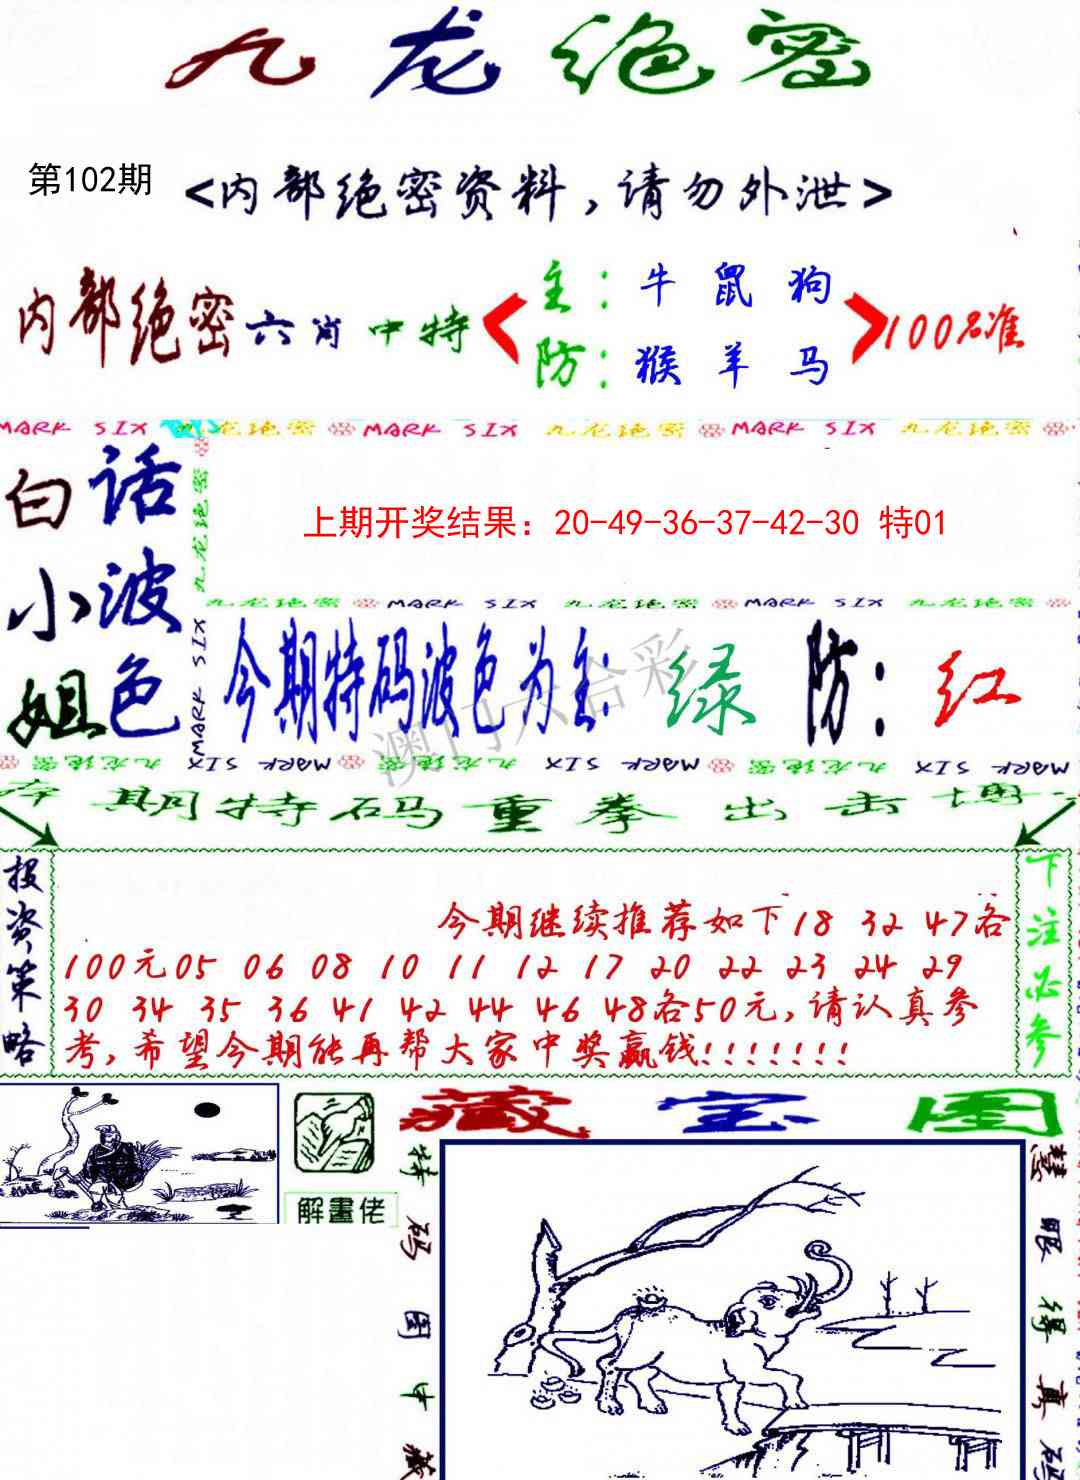 九龙绝密
第102期
<内部绝密资料,请勿外泄>
内部绝密六肖中特
主:牛 鼠 狗
防:猴 羊 马
100名准
MARK SIX 九龙绝密 MARK SIX 九龙绝密 MARK SIX 九龙绝密
白话
小波
姐色
九龙绝密
MARK SIX
上期开奖结果：20-49-36-37-42-30 特01
九龙绝密 MARK SIX 九龙绝密 MARK SIX 九龙绝密
今期特码波色为主:绿 防:红
澳门六合彩
九龙绝密 MARK SIX 九龙绝密 MARK SIX 九龙绝密 MARK SIX
本期特码重拳出击博
投资策略
今期继续推荐如下18 32 47各
100元05 06 08 10 11 12 17 20 22 23 24 29
30 34 35 36 41 42 44 46 48各50元,请认真参
考,希望今期能再帮大家中奖赢钱!!!!!!!
下注必参
解畫佬
藏宝图
特码图中藏
慧眼得真码